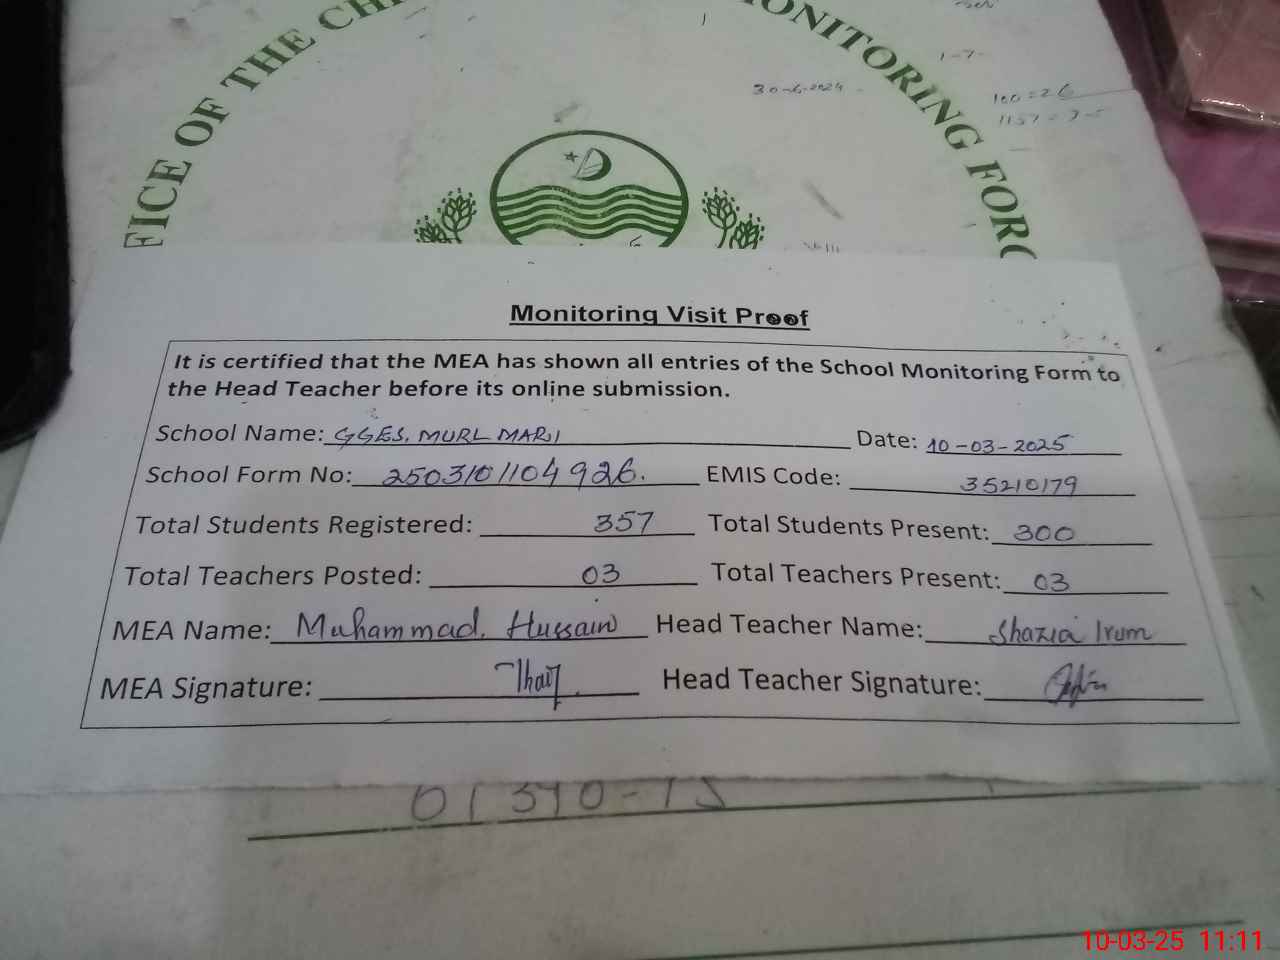 FICE OF THE CHI
ONITORING FORC
30-6-2024
1-7-
100=26
Monitoring Visit Proof
It is certified that the MEA has shown all entries of the School Monitoring Form to
the Head Teacher before its online submission.
School Name: GGES, MURL MARI Date: 10-03-2025
School Form No: 2503101104926. EMIS Code: 35210179
Total Students Registered: 357 Total Students Present: 300
Total Teachers Posted: 03 Total Teachers Present: 03
MEA Name: Muhammad. Hussain Head Teacher Name: Shazia Irum
MEA Signature: Head Teacher Signature:
10-03-25 11:11